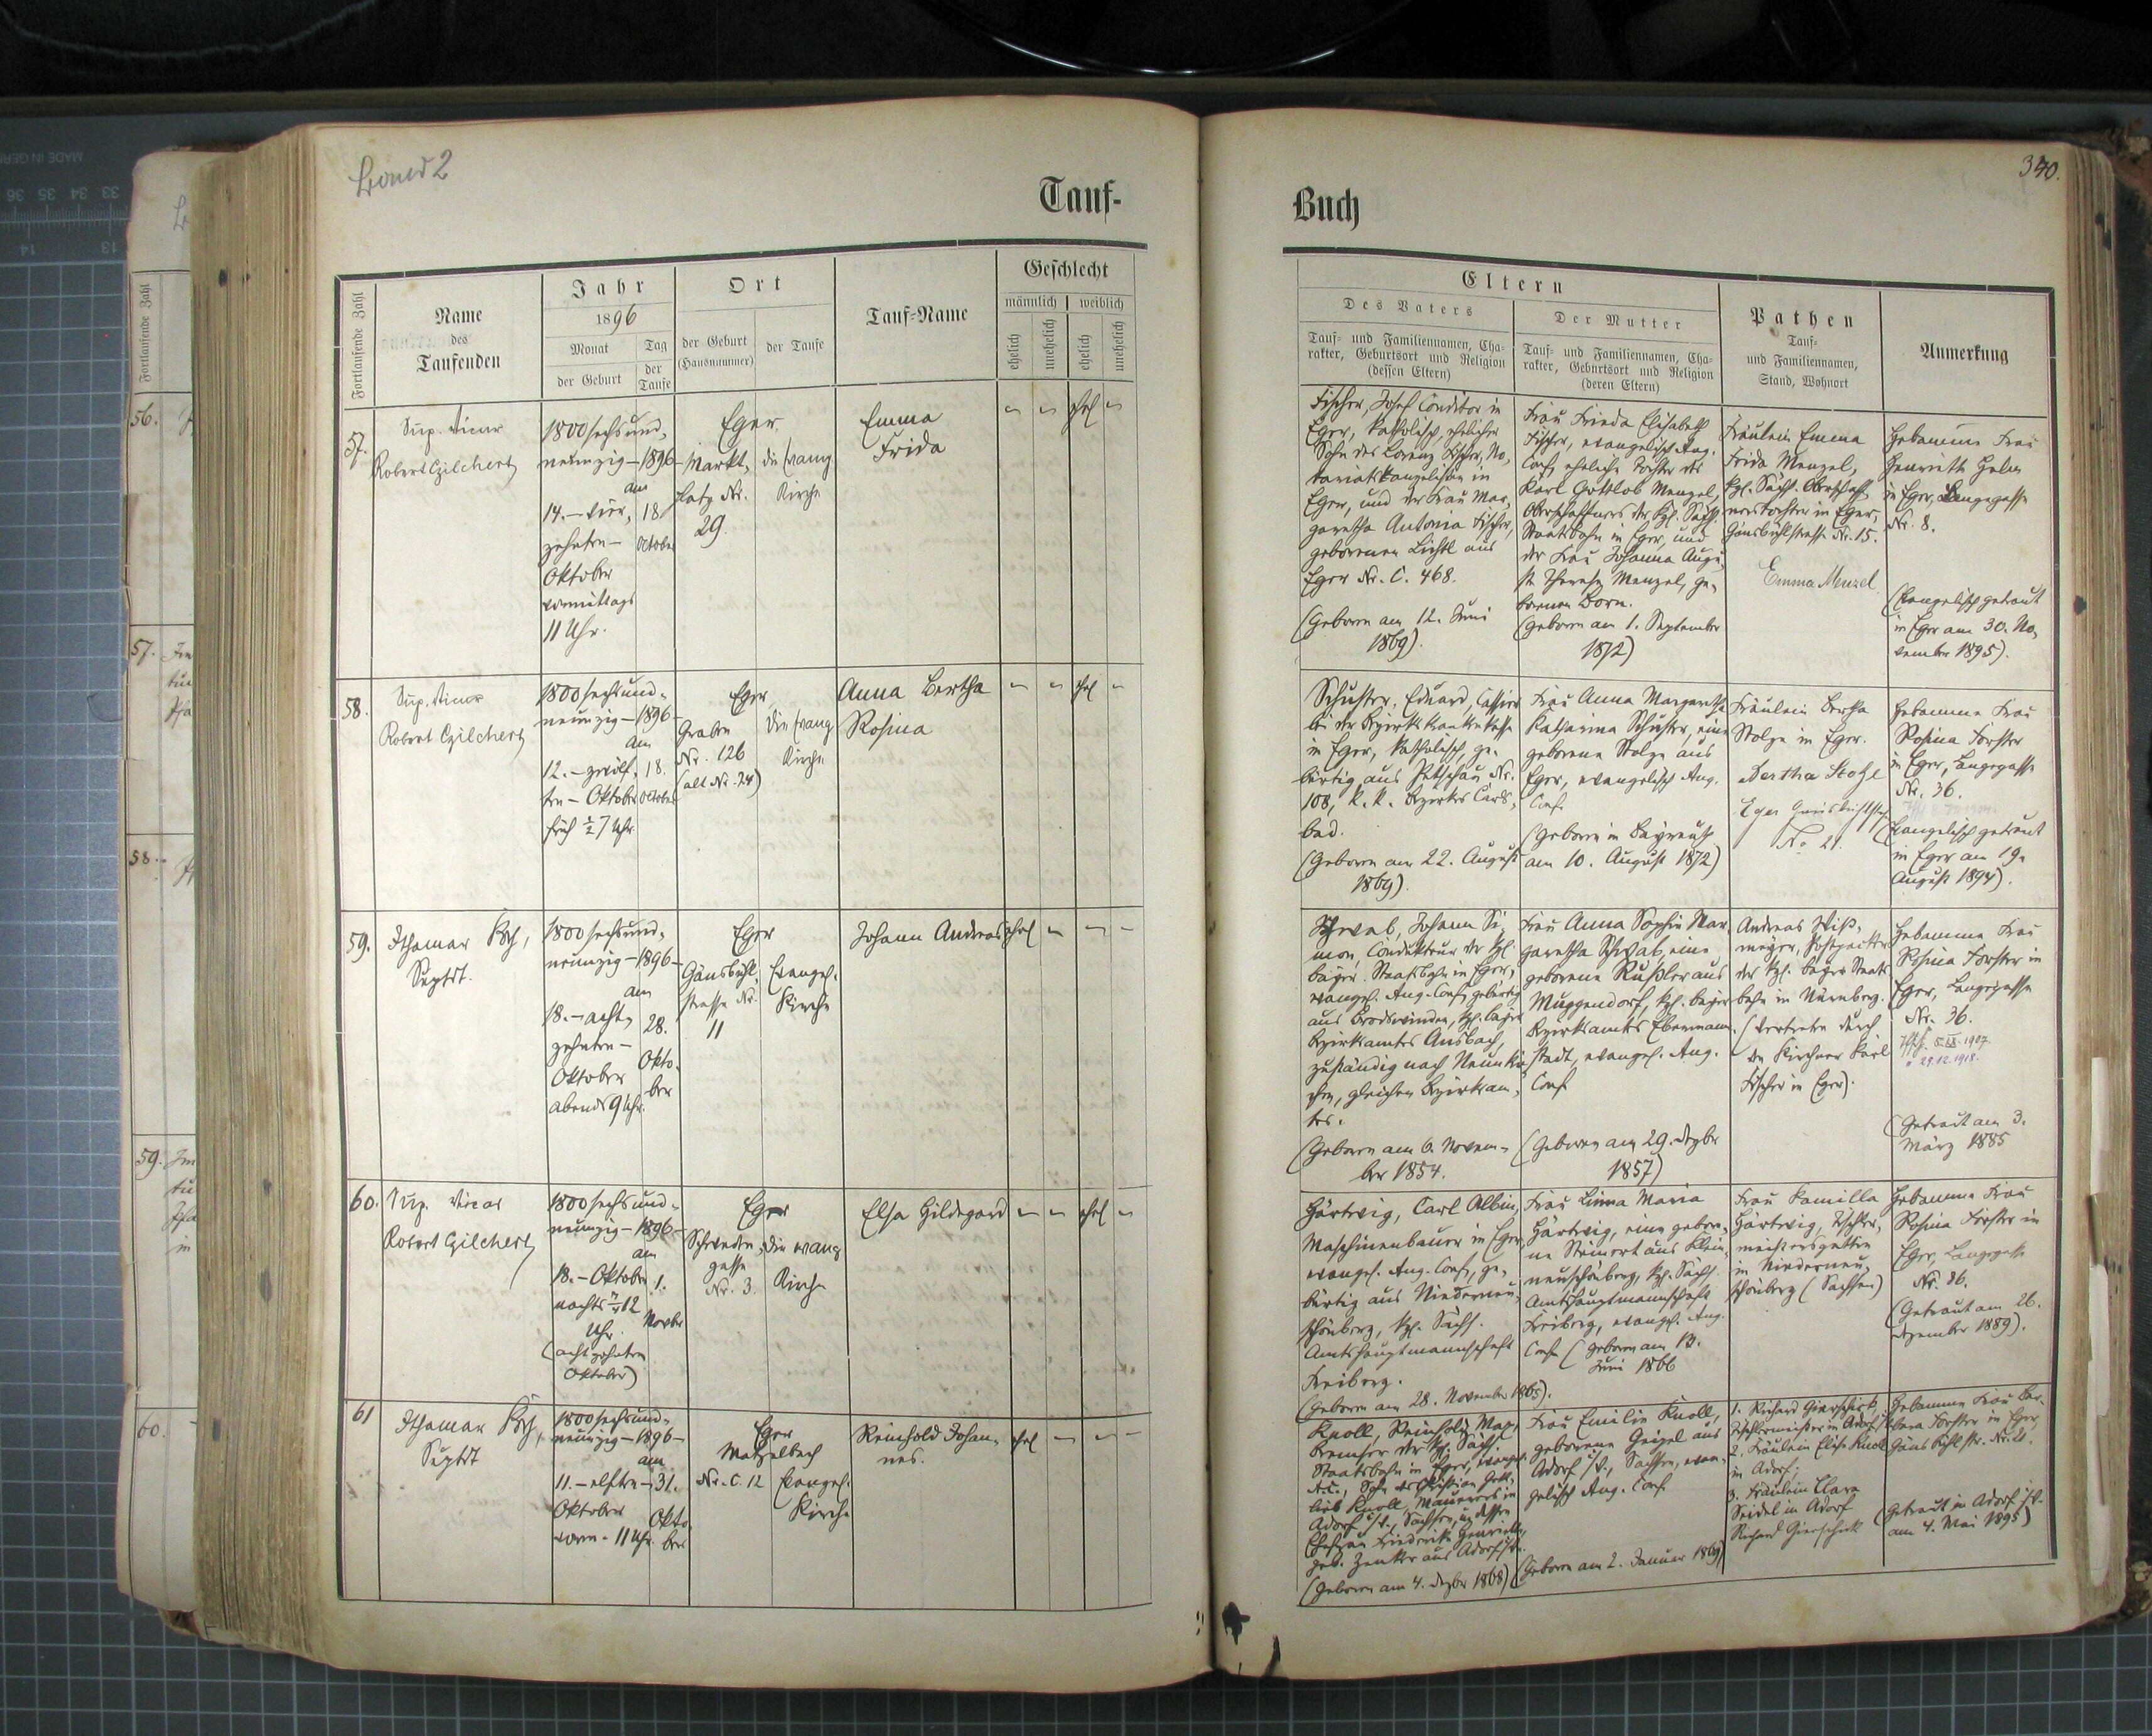 Band 2
Tauf-
Buch
340.
Fortlaufende Zahl
Name
des
Taufenden
Jahr
1896
Monat
der Geburt
Tag
der
Taufe
Ort
der Geburt
(Hausnummer)
der Taufe
Tauf-Name
Geschlecht
männlich
weiblich
ehelich
unehelich
ehelich
unehelich
Eltern
Des Vaters
Tauf- und Familiennamen, Cha-
rakter, Geburtsort und Religion
(dessen Eltern)
Der Mutter
Tauf- und Familiennamen, Cha-
rakter, Geburtsort und Religion
(deren Eltern)
Pathen
Tauf-
und Familiennamen,
Stand, Wohnort
Anmerkung
57.
Sup. Vicar
Robert Gilchert
1800 sechsund-
neunzig - 1896 -
am
14. - vier-
zehnten -
Oktober
vormittags
11 Uhr.
18.
October
Eger
Markt-
platz Nr.
29.
die evang
Kirche
Emma
Frida
ehel
Fischer, Josef Conditor in
Eger, katholisch, ehelicher
Sohn des Lorenz Fischer, No-
tariatskanzelisten in
Eger, und der Frau Mar-
garetha Antonia Fischer,
geborenen Lichtl aus
Eger Nr. C. 468.
(Geboren am 12. Juni
1869).
Frau Frieda Elisabeth
Fischer, evangelisch Aug.
Conf, eheliche Tochter des
Karl Gottlob Menzel,
Oberschaffners der Kgl. Sächs
Staatsbahn in Eger, und
der Frau Johanna Augu-
st Therese Menzel, ge-
borenen Born.
(Geboren am 1. September
1872)
Fräulein Emma
Frida Menzel,
Kgl. Sächs. Oberschaff-
nerstochter in Eger,
Gänsbühlstrasse Nr. 15.
Emma Menzel.
Hebamme Frau
Henriette Helm
in Eger, Langegasse
Nr. 8.
(Evangelisch getraut
in Eger am 30. No-
vember 1895).
58.
Sup. Vicar
Robert Gilchert
1800 sechsund-
neunzig - 1896 -
am
12. - zwölf-
ten - Oktober
früh ½7 Uhr
18.
October
Eger
Graben
Nr. 126
(alt Nr. 24)
Die evang
Kirche
Anna Bertha
Rosina
ehel
Schuster, Eduard, Cassier
bei der Bezirkskrankenkasse
in Eger, katholisch, ge-
bürtig aus Petschau Nr.
108, k. k. Bezirkes Carls-
bad.
(Geboren am 22. August
1869).
Frau Anna Margaretha
Katharina Schuster, eine
geborene Stolze aus
Eger, evangelisch Aug.
Conf.
(Geboren in Bayreuth
am 10. August 1872)
Fräulein Bertha
Stolze in Eger.
Bertha Stolze
Eger
No 21.
Hebamme Frau
Rosina Forster
in Eger, Langegasse
Nr. 36.
(Evangelisch getraut
in Eger am 19.
August 1894).
59.
Ithamar Koch,
Suptdt.
1800 sechsund-
neunzig - 1896 -
am
18. - acht-
zehnten -
Oktober
abends 9 Uhr.
28.
Okto-
ber
Eger
Gänsbühl-
strasse Nr.
11
Evangel.
Kirche
Johann Andreas
ehel
Schwab, Johann Si-
mon, Condukteur der Kgl.
bayer. Staatsbahn in Eger,
evangel. Aug. Conf, gebürtig
aus Brodswinden, Kgl. bayer
Bezirksamtes Ansbach,
zuständig nach Neunkir-
chen, gleichen Bezirksam-
tes.
(Geboren am 6. Novem-
ber 1854.
Frau Anna Sophia Mar
garetha Schwab, eine
geborene Rußler aus
Muggendorf, Kgl. bayer
Bezirksamtes Ebermann-
stadt, evangel. Aug.
Conf
(Geboren am 29. Dezber
1857)
Andreas Wiß-
meyer,
der Kgl. bayer Staats
bahn in Nürnberg.
(Vertreten durch
den Kirchner Karl
Fischer in Eger).
Hebamme Frau
Rosina Forster in
Eger, Langegasse
Nr. 36.
1907
29.12.1918.
(Getraut am 3.
März 1885
60.
Sup. Vicar
Robert Gilchert
1800 sechsund-
neunzig - 1896 -
am
18. - Oktober
nachts ¾12
Uhr.
(achtzehnten
Oktober)
1.
Novbr
Eger
Schreder-
gasse
Nr. 3.
Die evang
Kirche
Elsa Hildegard
ehel
Härtwig, Carl Albin,
Maschinenbauer in Eger,
evangel. Aug. Conf, ge-
bürtig aus Niederneu-
schönberg, Kgl. Sächs.
Amtshauptmannschaft
Freiberg.
(Geboren am 28. November 1865).
Frau Linna Maria
Härtwig, eine gebore-
ne Steinert aus Klein-
neuschönberg, Kgl. Sächs.
Amtshauptmannschaft
Freiberg, evangel. Aug.
Conf. (Geboren am 13.
Juni 1866
Frau Kamilla
Härtwig, Tischler-
meistersgattin
in Niederneu-
schönberg (Sachsen)
Hebamme Frau
Rosina Forster in
Eger, Langegasse
Nr. 36.
(Getraut am 26.
Dezember 1889).
61
Ithamar Koch,
Suptdt
1800 sechsund-
neunzig - 1896 -
am
11. - elften -
Oktober
vorm. 11 Uhr.
31.
Okto-
ber
Eger
Matzelbach
Nr. C. 12
Evangel.
Kirche
Reinhold Johan-
nes.
ehel
Knoll, Reinhold Max,
Bremser der Kgl. Sächs.
Staatsbahn in Eger, evangel.
A.C., Sohn des Christian Gott-
lieb Knoll, Maurers in
Adorf i/V., Sachsen, u. dessen
Ehefrau Friederike Henriette,
geb. Zenker aus Adorf i/V.
(Geboren am 4. Dezbr 1868)
Frau Emilie Knoll,
geborene Geigel aus
Adorf i/V., Sachsen, evan-
gelisch Aug. Conf.
(Geboren am 2. Januar 1869)
1. Richard Gierschick,
Tischlermeister in Adorf i/V
2. Fräulein Elise Knoll
in Adorf,
3. Fräulein Clara
Seidel in Adorf
Richard Gierschick
Hebamme Frau Bar-
bara Forster in Eger,
Gänsbühlstr. Nr. 21.
(Getraut in Adorf i/V.
am 4. Mai 1895)
Fortlaufende Zahl
56.
57.
58.
59.
60.